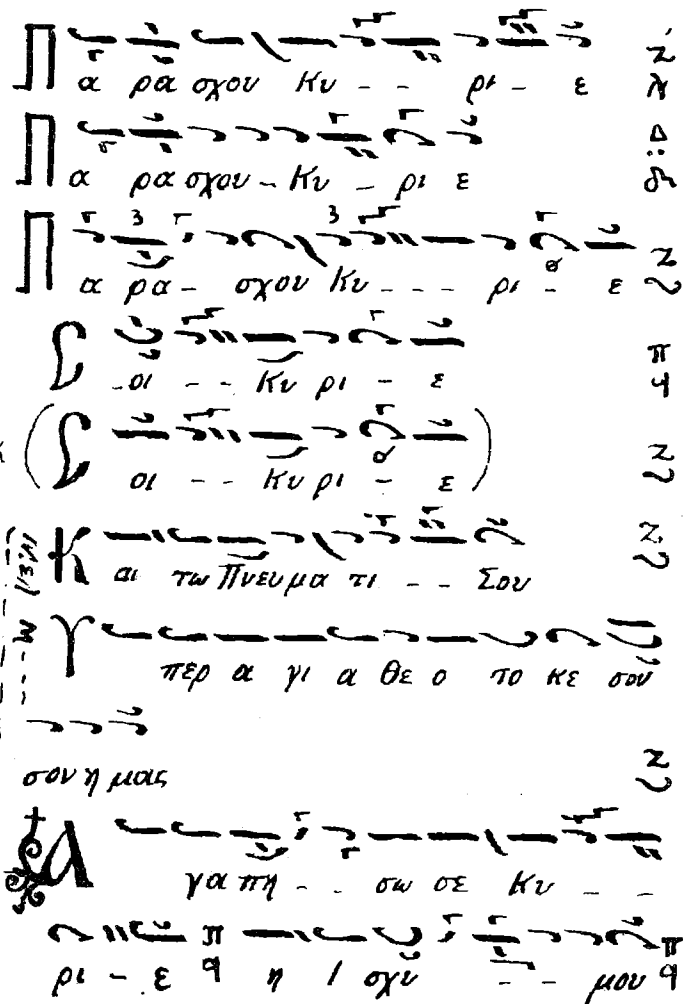 Π α ρα σχου Κυ - - ρι - ε
Π α ρα σχου - Κυ - ρι ε
Π α ρα - σχου Κυ - - - ρι - ε
Σ οι - - Κυ ρι - ε
( Σ οι - - Κυ ρι - ε )
Κ αι τω Πνευμα τι - - Σου
Υ περ α γι α Θε ο το κε σου
σον η μας
Α γα πη - - σω σε Κυ - -
ρι - ε η Ι σχυ - - μου